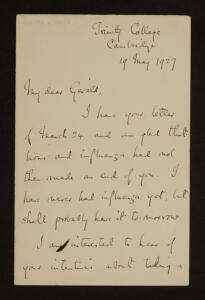 Trinity College
Cambridge
19 May 1927
My dear Gerald,
I have your letter
of March 24 and am glad that
lions and influenza had not
then made an end of you. I
have never had influenza yet, but
shall probably have it to-morrow.
I am interested to hear of
your intentions about taking a